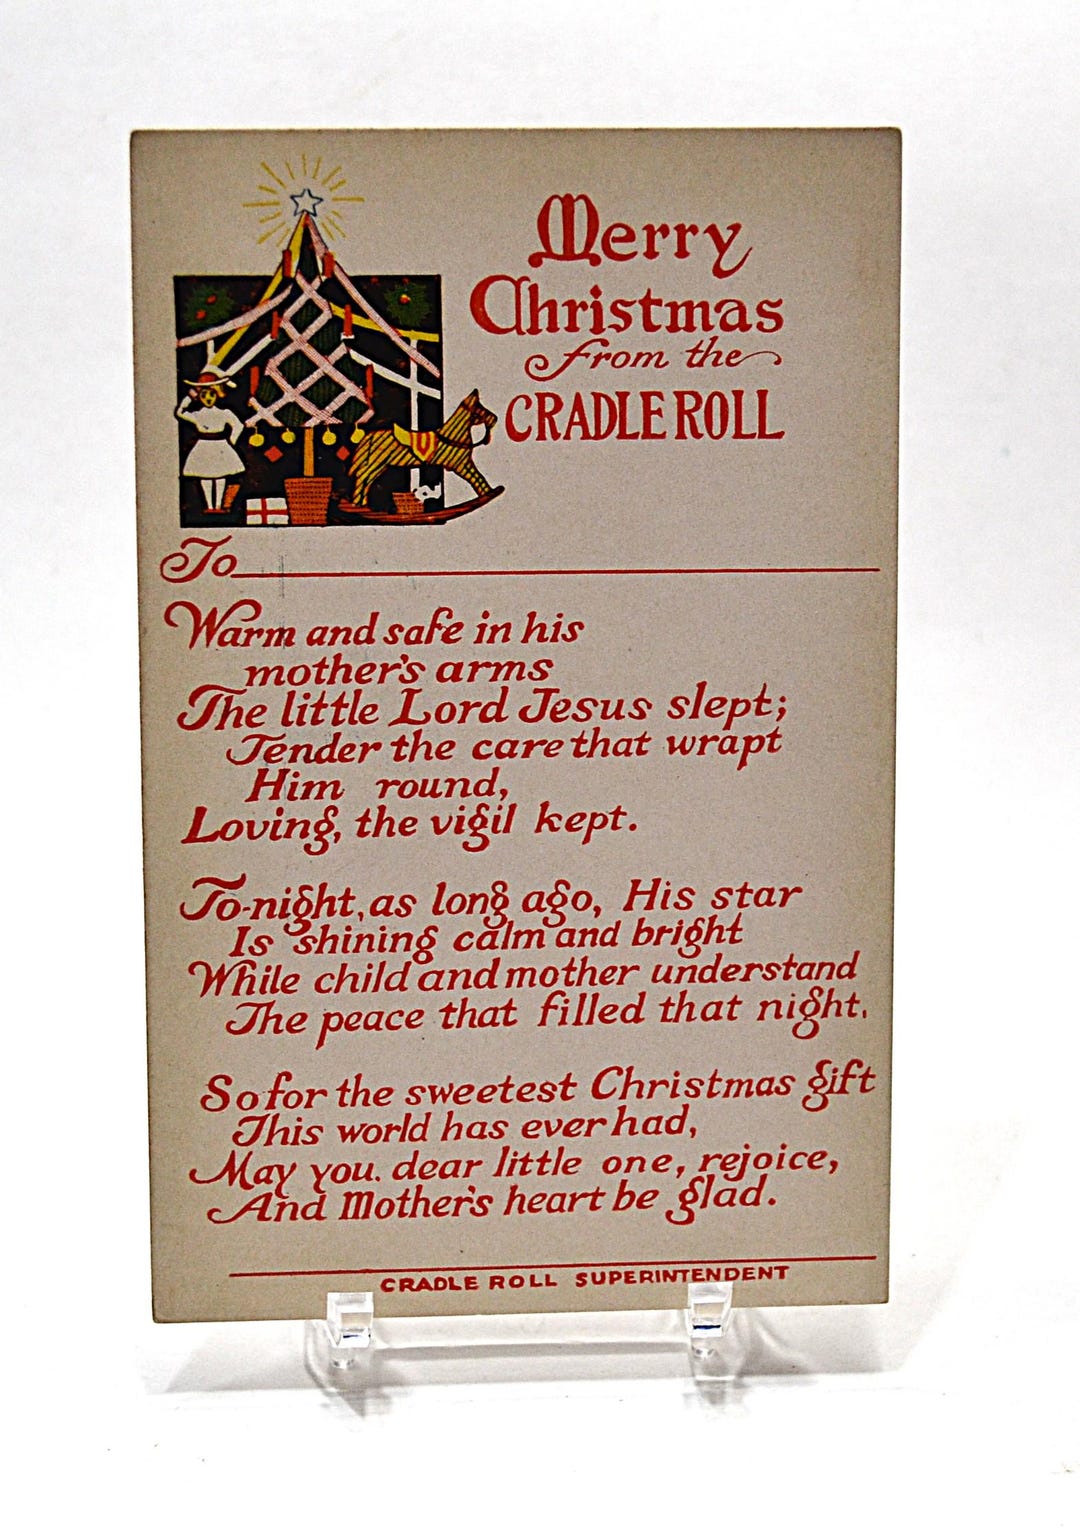 Merry
Christmas
from the
CRADLE ROLL
To
Warm and safe in his
mother's arms
The little Lord Jesus slept;
Tender the care that wrapt
Him round,
Loving, the vigil kept.
To-night, as long ago, His star
Is shining calm and bright
While child and mother understand
The peace that filled that night.
So for the sweetest Christmas gift
This world has ever had,
May you. dear little one, rejoice,
And Mother's heart be glad.
CRADLE ROLL SUPERINTENDENT